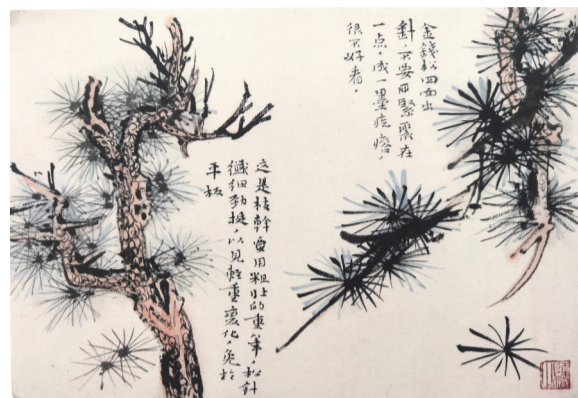 金錢松四面出
針，不要緊聚在
一点，成一墨疙瘩，
很不好看。
这是枝幹要用粗壮的重筆，松針
纖细劲挺，以見輕重變化，免於
平板